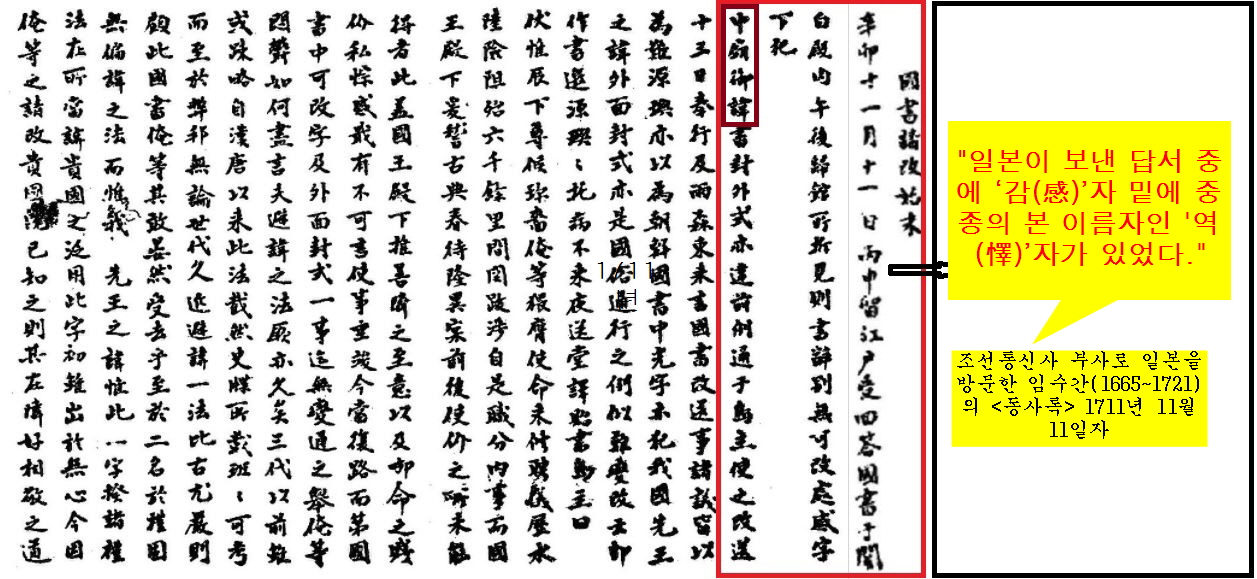 國書請改始末
辛卯十一月十一日丙申留江戶受回答國書于關
白殿內午後歸館所拆見則書辭別無可改處感字
下犯
中廟御諱書封外式亦違前例通于島主使之改送
十三日奉行及雨森東來言國書改送事諸議皆以
為難源璵亦以為朝鮮國書中光字亦犯我國先王
之諱外面封式亦是國俗通行之例似難變改云卽
作書送源璵〻托病不來夜送堂譯貽書島主曰
伏惟辰下尊候珍嗇俺等猥膺使命來修聘儀歷水
陸險阻殆六千餘里間關跋涉自是職分內事而國
王殿下爰稽古典待隆異寔前後使价之所未能
得者此盖國王殿下推善隣之至意以及命之賤
价私悰感戢有不可言使事垂竣今當復路而第國
書中可改字及外面封式一事迄無變通之擧俺等
悶鬱如何盡言夫避諱之法厥亦久矣三代以前雖
或疎略自漢唐以來此法截然史牒所載班〻可考
而至於弊邦無論世代久近避諱一法比古尤嚴則
顧此國書俺等其敢晏然受去乎至於二名於禮固
無偏諱之法而惟我 先王之諱惟此一字揆諸禮
法在所當諱貴國之泛用此字初雖出於無心今因
俺等之請改貴國已知之則其在隣好相敬之道
"일본이 보낸 답서 중
에 ‘감(感)’자 밑에 중
종의 본 이름자인 '역
(懌)’자가 있었다."
조선통신사 부사로 일본을
방문한 임수간(1665~1721)
의 <동사록> 1711년 11월
11일자